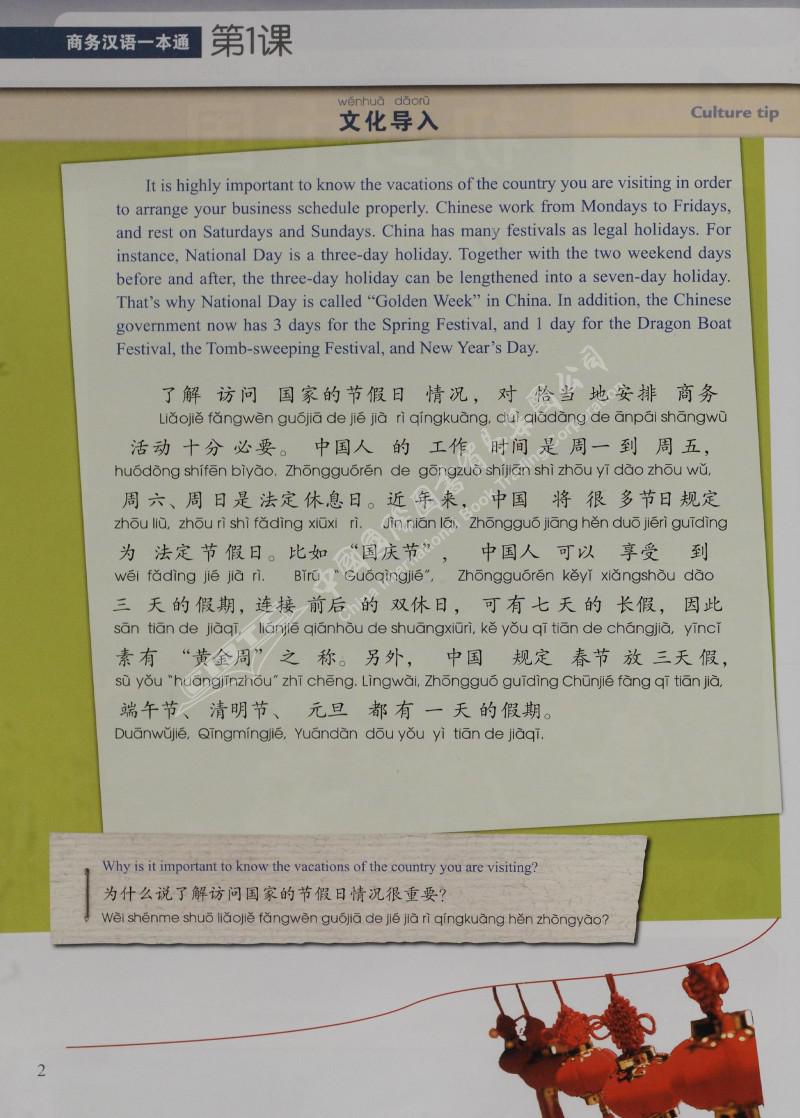 商务汉语一本通 第1课
wénhuà dǎorù
文化导入
Culture tip
It is highly important to know the vacations of the country you are visiting in order
to arrange your business schedule properly. Chinese work from Mondays to Fridays,
and rest on Saturdays and Sundays. China has many festivals as legal holidays. For
instance, National Day is a three-day holiday. Together with the two weekend days
before and after, the three-day holiday can be lengthened into a seven-day holiday.
That's why National Day is called “Golden Week” in China. In addition, the Chinese
government now has 3 days for the Spring Festival, and 1 day for the Dragon Boat
Festival, the Tomb-sweeping Festival, and New Year's Day.
了解 访问 国家的节假日 情况，对 恰当 地安排 商务
Liǎojiě fǎngwèn guójiā de jié jià rì qíngkuàng, duì qiàdàng de ānpái shāngwù
活动 十分 必要。 中国人 的 工作 时间 是 周一 到 周五，
huódòng shífēn bìyào. Zhōngguórén de gōngzuò shíjiān shì zhōu yī dào zhōu wǔ,
周六、周日是法定休息日。近年来，中国 将 很 多节日规定
zhōu liù, zhōu rì shì fǎdìng xiūxi rì. Jìn nián lái, Zhōngguó jiāng hěn duō jiérì guīdìng
为 法定节假日。比如 “国庆节”， 中国人 可以 享受 到
wéi fǎdìng jié jià rì. Bǐrú “Guóqìngjié”, Zhōngguórén kěyǐ xiǎngshòu dào
三 天的假期，连接 前后 的 双休日，可有七天的 长假，因此
sān tiān de jiàqī, liánjiē qiánhòu de shuāngxiūrì, kě yǒu qī tiān de chángjià, yīncǐ
素有 “黄金周”之 称。另外， 中国 规定 春节 放 三天假，
sù yǒu “huángjīnzhōu” zhī chēng. Lìngwài, Zhōngguó guīdìng Chūnjié fàng qī tiān jià,
端午节、清明节、 元旦 都有 一 天的假期。
Duānwǔjié, Qīngmíngjié, Yuándàn dōu yǒu yì tiān de jiàqī.
Why is it important to know the vacations of the country you are visiting?
为什么说了解访问国家的节假日情况很重要？
Wèi shénme shuō liǎojiě fǎngwèn guójiā de jié jià rì qíngkuàng hěn zhòngyào?
2
中国国际图书贸易集团公司
China International Book Trading Corporation